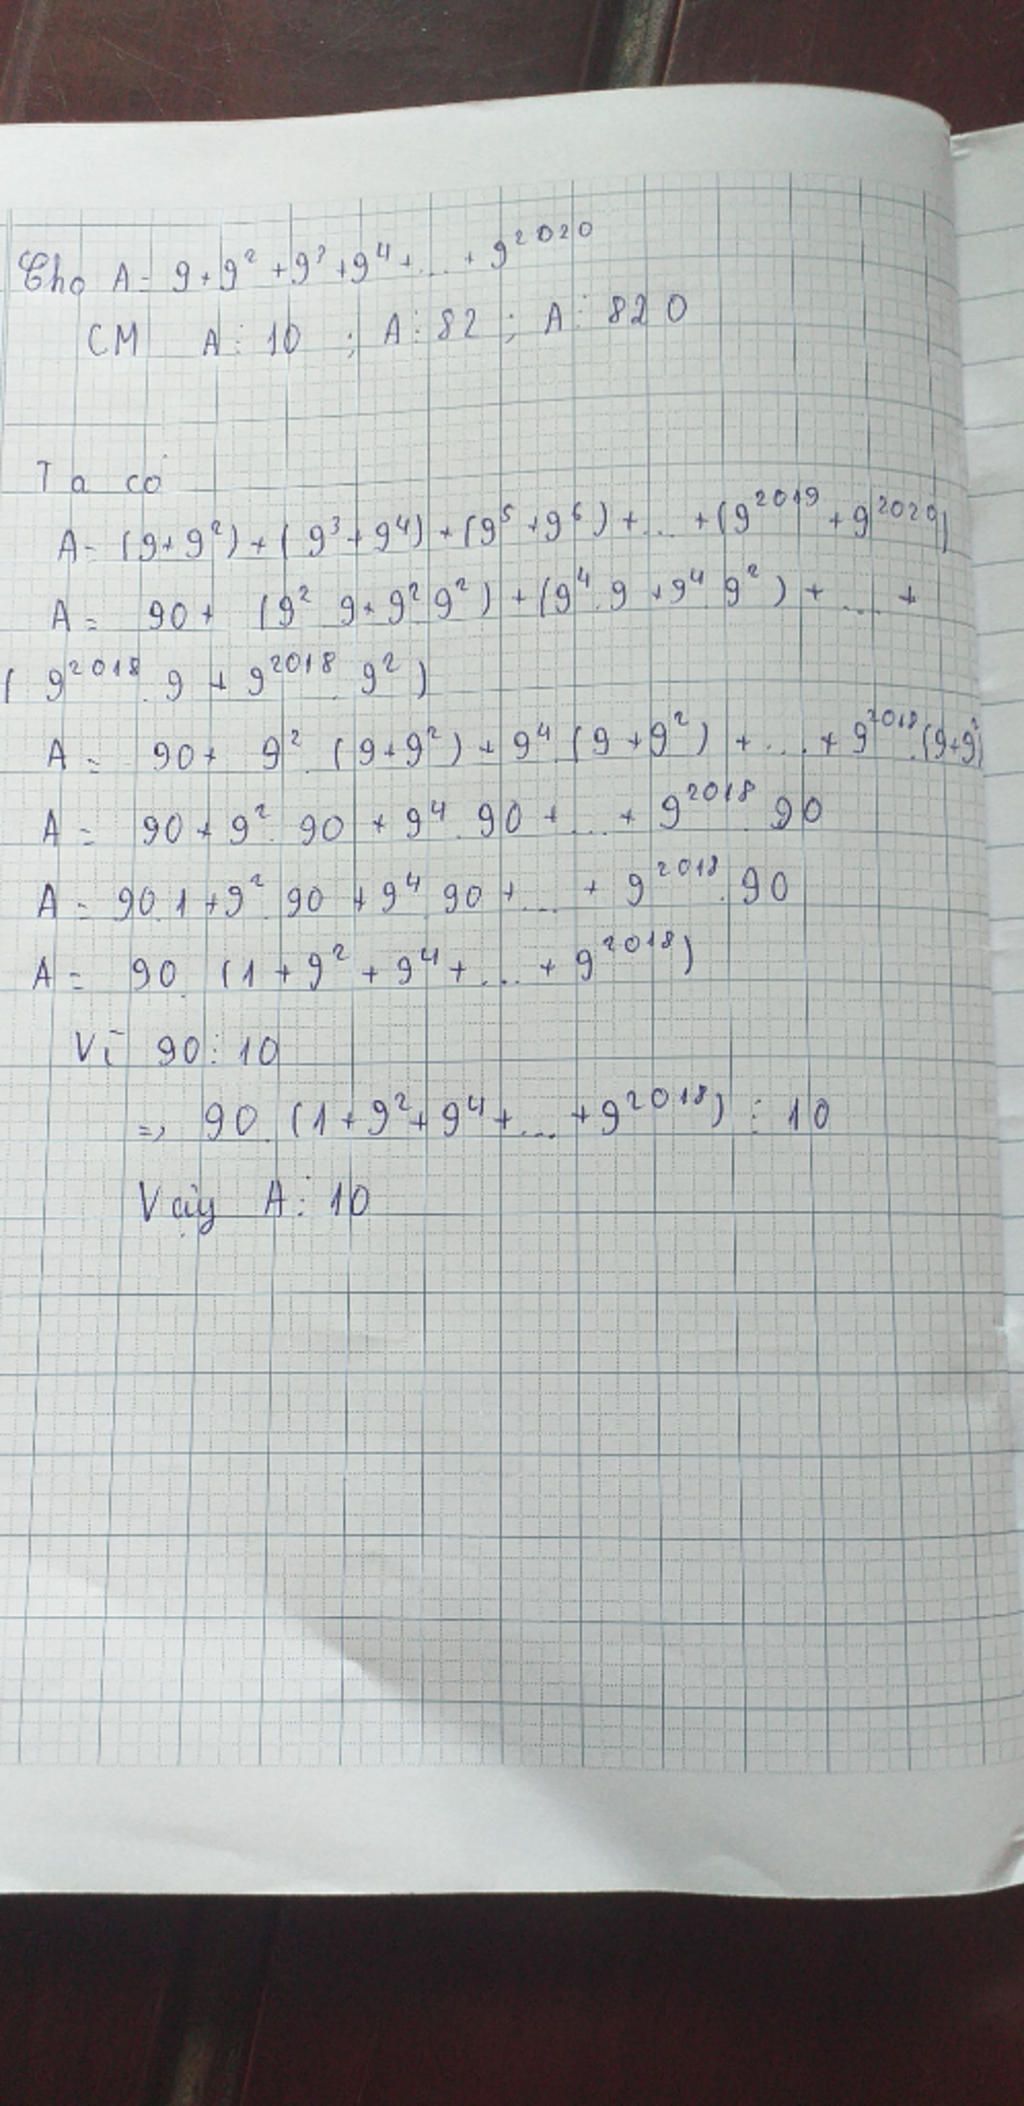 Cho A = 9 + 9² + 9³ + 9⁴ + ... + 9²⁰²⁰
CM A ⋮ 10 ; A ⋮ 82 ; A ⋮ 820
Ta có
A = (9 + 9²) + (9³ + 9⁴) + (9⁵ + 9⁶) + ... + (9²⁰¹⁹ + 9²⁰²⁰)
A = 90 + (9² . 9 + 9² . 9²) + (9⁴ . 9 + 9⁴ . 9²) + ... +
(9²⁰¹⁸ . 9 + 9²⁰¹⁸ . 9²)
A = 90 + 9² . (9 + 9²) + 9⁴ . (9 + 9²) + ... + 9²⁰¹⁸ . (9 + 9²)
A = 90 + 9² . 90 + 9⁴ . 90 + ... + 9²⁰¹⁸ . 90
A = 90 . 1 + 9² . 90 + 9⁴ . 90 + ... + 9²⁰¹⁸ . 90
A = 90 . (1 + 9² + 9⁴ + ... + 9²⁰¹⁸)
Vì 90 ⋮ 10
=> 90 . (1 + 9² + 9⁴ + ... + 9²⁰¹⁸) ⋮ 10
Vậy A ⋮ 10